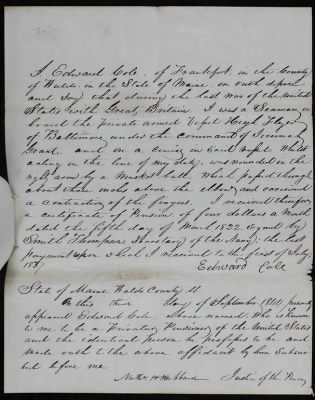 I Edward Cole, of Frankfort in the County
of Waldo, in the State of Maine, on oath depose
and say that during the last war of the United
States with Great Britain I was a Seaman on
board the Private armed Vessel High Flyer
of Baltimore under the command of
Grant and on a Cruise in said vessel. Whilst
acting in the line of my duty, was wounded in the
right arm by a Musket ball, which passed through
about three inches above the elbow and occasioned
a contraction of the fingers. I received therefor
a certificate of Pension of four dollars a Month
dated the fifth day of March 1822, signed by
Smith Thompson, Secretary of the Navy; the last
payment upon which I received to the first of July
1837
Edward Cole
State of Maine Waldo County SS.
On this third day of September 1861, personally
appeared Edward Cole above named, who is known
to me to be a Privateer Pensioner of the United States
and the identical person he professes to be and
made oath to the above affidavit by him Subscri
bed before me
Hubbard Justice of the Peace